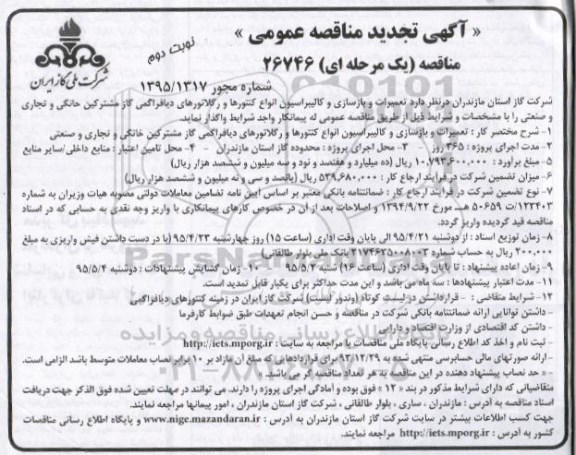 « آگهی تجدید مناقصه عمومی »
نوبت دوم
مناقصه (یک مرحله ای) ۲۶۷۴۶
شماره مجوز ۱۳۹۵/۱۳۱۷
شرکت ملی گاز ایران
شرکت گاز استان مازندران درنظر دارد تعمیرات و بازسازی و کالیبراسیون انواع کنتورها و رگلاتورهای دیافراگمی گاز مشترکین خانگی و تجاری
و صنعتی را با مشخصات و شرایط ذیل از طریق مناقصه عمومی به پیمانکار واجد شرایط واگذار نماید.
۱- شرح مختصر کار : تعمیرات و بازسازی و کالیبراسیون انواع کنتورها و رگلاتورهای دیافراگمی گاز مشترکین خانگی و تجاری و صنعتی
۲- مدت اجرای پروژه : ۳۶۵ روز - ۳- محل اجرای پروژه : محدوده گاز استان مازندران - ۴- محل تامین اعتبار : منابع داخلی/سایر منابع
۵- مبلغ برآورد : ۱۰,۷۹۳,۶۰۰,۰۰۰ ریال (ده میلیارد و هفتصد و نود و سه میلیون و ششصد هزار ریال)
۶- میزان تضمین شرکت در فرآیند ارجاع کار : ۵۳۹,۶۸۰,۰۰۰ ریال (پانصد و سی و نه میلیون و ششصد هزار ریال)
۷- نوع تضمین شرکت در فرآیند ارجاع کار : ضمانتنامه بانکی معتبر بر اساس آیین نامه تضامین معاملات دولتی مصوبه هیات وزیران به شماره
۱۲۳۴۰۲/ت ۵۰۶۵۹ هـ مورخ ۱۳۹۴/۹/۲۲ و اصلاحات بعد از آن در خصوص کارهای پیمانکاری با واریز وجه نقدی به حسابی که در اسناد
مناقصه قید گردیده واریز گردد.
۸- زمان توزیع اسناد : از دوشنبه ۹۵/۴/۲۱ الی پایان وقت اداری (ساعت ۱۵) روز چهارشنبه ۹۵/۴/۲۳ (با در دست داشتن فیش واریزی به مبلغ
۲۰۰,۰۰۰ ریال به حساب شماره بانک ملی بلوار طالقانی)
۹- زمان اعاده پیشنهاد : تا پایان وقت اداری (ساعت ۱۶) شنبه ۹۵/۵/۲ - ۱۰- زمان گشایش پیشنهادات : دوشنبه ۹۵/۵/۴
۱۱- مدت اعتبار پیشنهادها : سه ماه می باشد و این مدت حداکثر برای یکبار قابل تمدید است.
۱۲- شرایط متقاضی : - قرارداشتن در لیست کوتاه (وندور لیست) شرکت گاز ایران در زمینه کنتورهای دیافراگمی
- داشتن توانایی ارائه ضمانتنامه بانکی شرکت در مناقصه و حسن انجام تعهدات طبق ضوابط کارفرما
- داشتن کد اقتصادی از وزارت اقتصاد و دارایی
- ثبت نام و اخذ کد اطلاع رسانی پایگاه ملی مناقصات با مراجعه به سایت : http://iets.mporg.ir
- ارائه صورتهای مالی حسابرسی منتهی شده به ۹۳/۱۲/۲۹ برای قراردادهایی که مبلغ آن مازاد بر ۱۰ برابر نصاب معاملات متوسط باشد الزامی است.
- « حد نصاب پیشنهاد دهنده در این مناقصه به هر تعداد مناقصه گر می باشد. »
متقاضیانی که دارای شرایط مذکور در بند « ۱۲ » فوق بوده و آمادگی اجرای پروژه را دارند، می توانند در مهلت تعیین شده فوق الذکر جهت دریافت
اسناد مناقصه به آدرس : مازندران ، ساری ، بلوار طالقانی ، شرکت گاز استان مازندران ، امور پیمانها مراجعه نمایند.
جهت کسب اطلاعات بیشتر در سایت شرکت گاز استان مازندران به آدرس : www.nigc.mazandaran.ir و پایگاه اطلاع رسانی مناقصات
کشور به آدرس : http://iets.mporg.ir مراجعه نمایند.